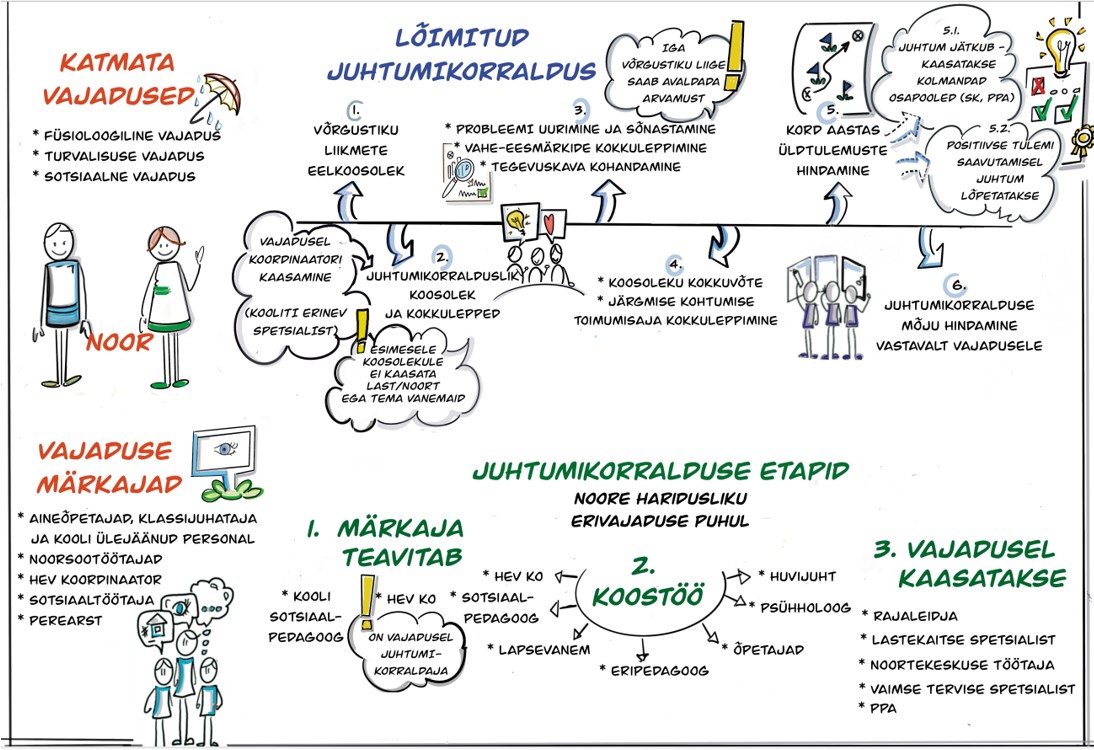 KATMATA
VAJADUSED
* FÜSIOLOOGILINE VAJADUS
* TURVALISUSE VAJADUS
* SOTSIAALNE VAJADUS
NOOR
LÕIMITUD
JUHTUMIKORRALDUS
1.
VÕRGUSTIKU
LIIKMETE
EELKOOSOLEK
VAJADUSEL
KOORDINAATORI
KAASAMINE
(KOOLITI ERINEV
SPETSIALIST)
2.
JUHTUMIKORRALDUSLIK
KOOSOLEK
JA KOKKULEPPED
ESIMESELE
KOOSOLEKULE
EI KAASATA
LAST/NOORT
EGA TEMA VANEMAID
IGA
VÕRGUSTIKU LIIGE
SAAB AVALDADA
ARVAMUST
3.
* PROBLEEMI UURIMINE JA SÕNASTAMINE
* VAHE-EESMÄRKIDE KOKKULEPPIMINE
* TEGEVUSKAVA KOHANDAMINE
4.
* KOOSOLEKU KOKKUVÕTE
* JÄRGMISE KOHTUMISE
TOIMUMISAJA KOKKULEPPIMINE
5.
KORD AASTAS
ÜLDTULEMUSTE
HINDAMINE
5.1.
JUHTUM JÄTKUB -
KAASATAKSE
KOLMANDAD
OSAPOOLED (SK, PPA)
5.2.
POSITIIVSE TULEMI
SAAVUTAMISEL
JUHTUM
LÕPETATAKSE
6.
JUHTUMIKORRALDUSE
MÕJU HINDAMINE
VASTAVALT VAJADUSELE
VAJADUSE
MÄRKAJAD
* AINEÕPETAJAD, KLASSIJUHATAJA
JA KOOLI ÜLEJÄÄNUD PERSONAL
* NOORSOOTÖÖTAJAD
* HEV KOORDINAATOR
* SOTSIAALTÖÖTAJA
* PEREARST
JUHTUMIKORRALDUSE ETAPID
NOORE HARIDUSLIKU
ERIVAJADUSE PUHUL
1. MÄRKAJA
TEAVITAB
* KOOLI
SOTSIAAL-
PEDAGOOG
* HEV KO
ON VAJADUSEL
JUHTUMI-
KORRALDAJA
2.
KOOSTÖÖ
* HEV KO
* SOTSIAAL-
PEDAGOOG
* LAPSEVANEM
* ERIPEDAGOOG
* ÕPETAJAD
* PSÜHHOLOOG
* HUVIJUHT
3. VAJADUSEL
KAASATAKSE
* RAJALEIDJA
* LASTEKAITSE SPETSIALIST
* NOORTEKESKUSE TÖÖTAJA
* VAIMSE TERVISE SPETSIALIST
* PPA